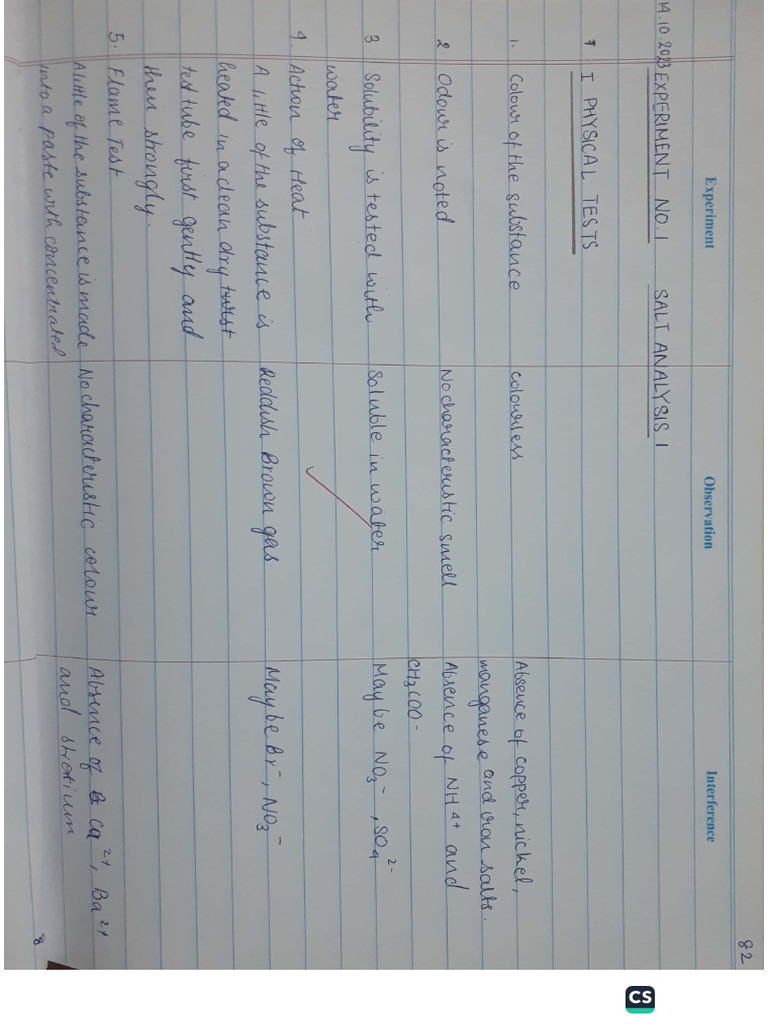 82
Experiment Observation Interference
14.10.2023 EXPERIMENT NO.1 SALT ANALYSIS 1
I PHYSICAL TESTS
1. Colour of the substance colourless Absence of copper, nickel,
manganese and iron salts.
2. Odour is noted No characteristic smell Absence of NH⁴⁺ and
CH₃COO⁻
3 Solubility is tested with Soluble in water May be NO₃⁻, SO₄²⁻
water
4. Action of Heat
A little of the substance is Reddish Brown gas May be Br⁻, NO₃⁻
heated in a clean dry
test tube first gently and
then strongly.
5. Flame Test
A little of the substance is made No characteristic colour Absence of Ca²⁺, Ba²⁺
into a paste with concentrated and strotium
8
CS